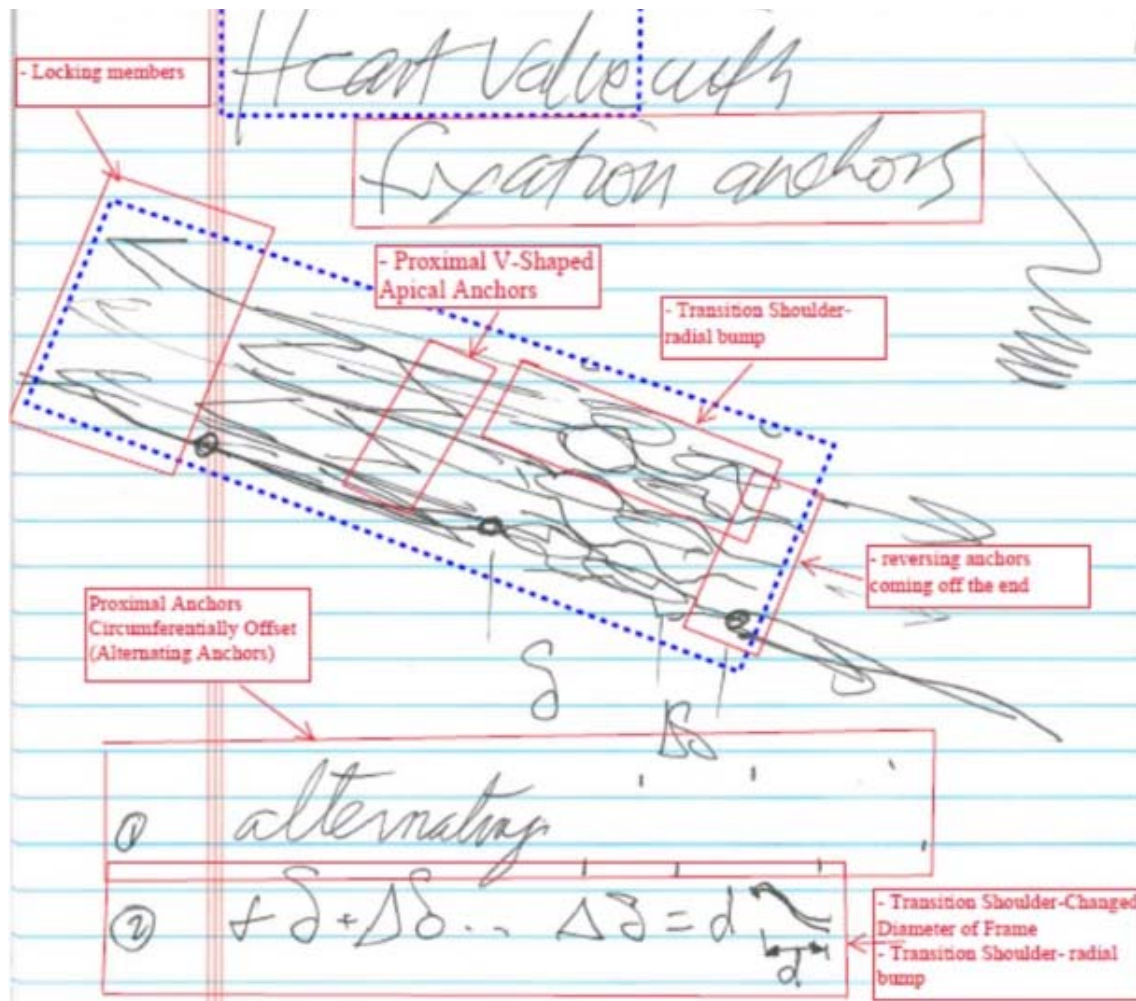 Heart Valve with
fixation anchors
- Locking members
- Proximal V-Shaped
Apical Anchors
- Transition Shoulder-
radial bump
- reversing anchors
coming off the end
Proximal Anchors
Circumferentially Offset
(Alternating Anchors)
δ
Δδ
① alternating
② + δ + Δδ... Δδ = d
d
- Transition Shoulder-Changed
Diameter of Frame
- Transition Shoulder- radial
bump